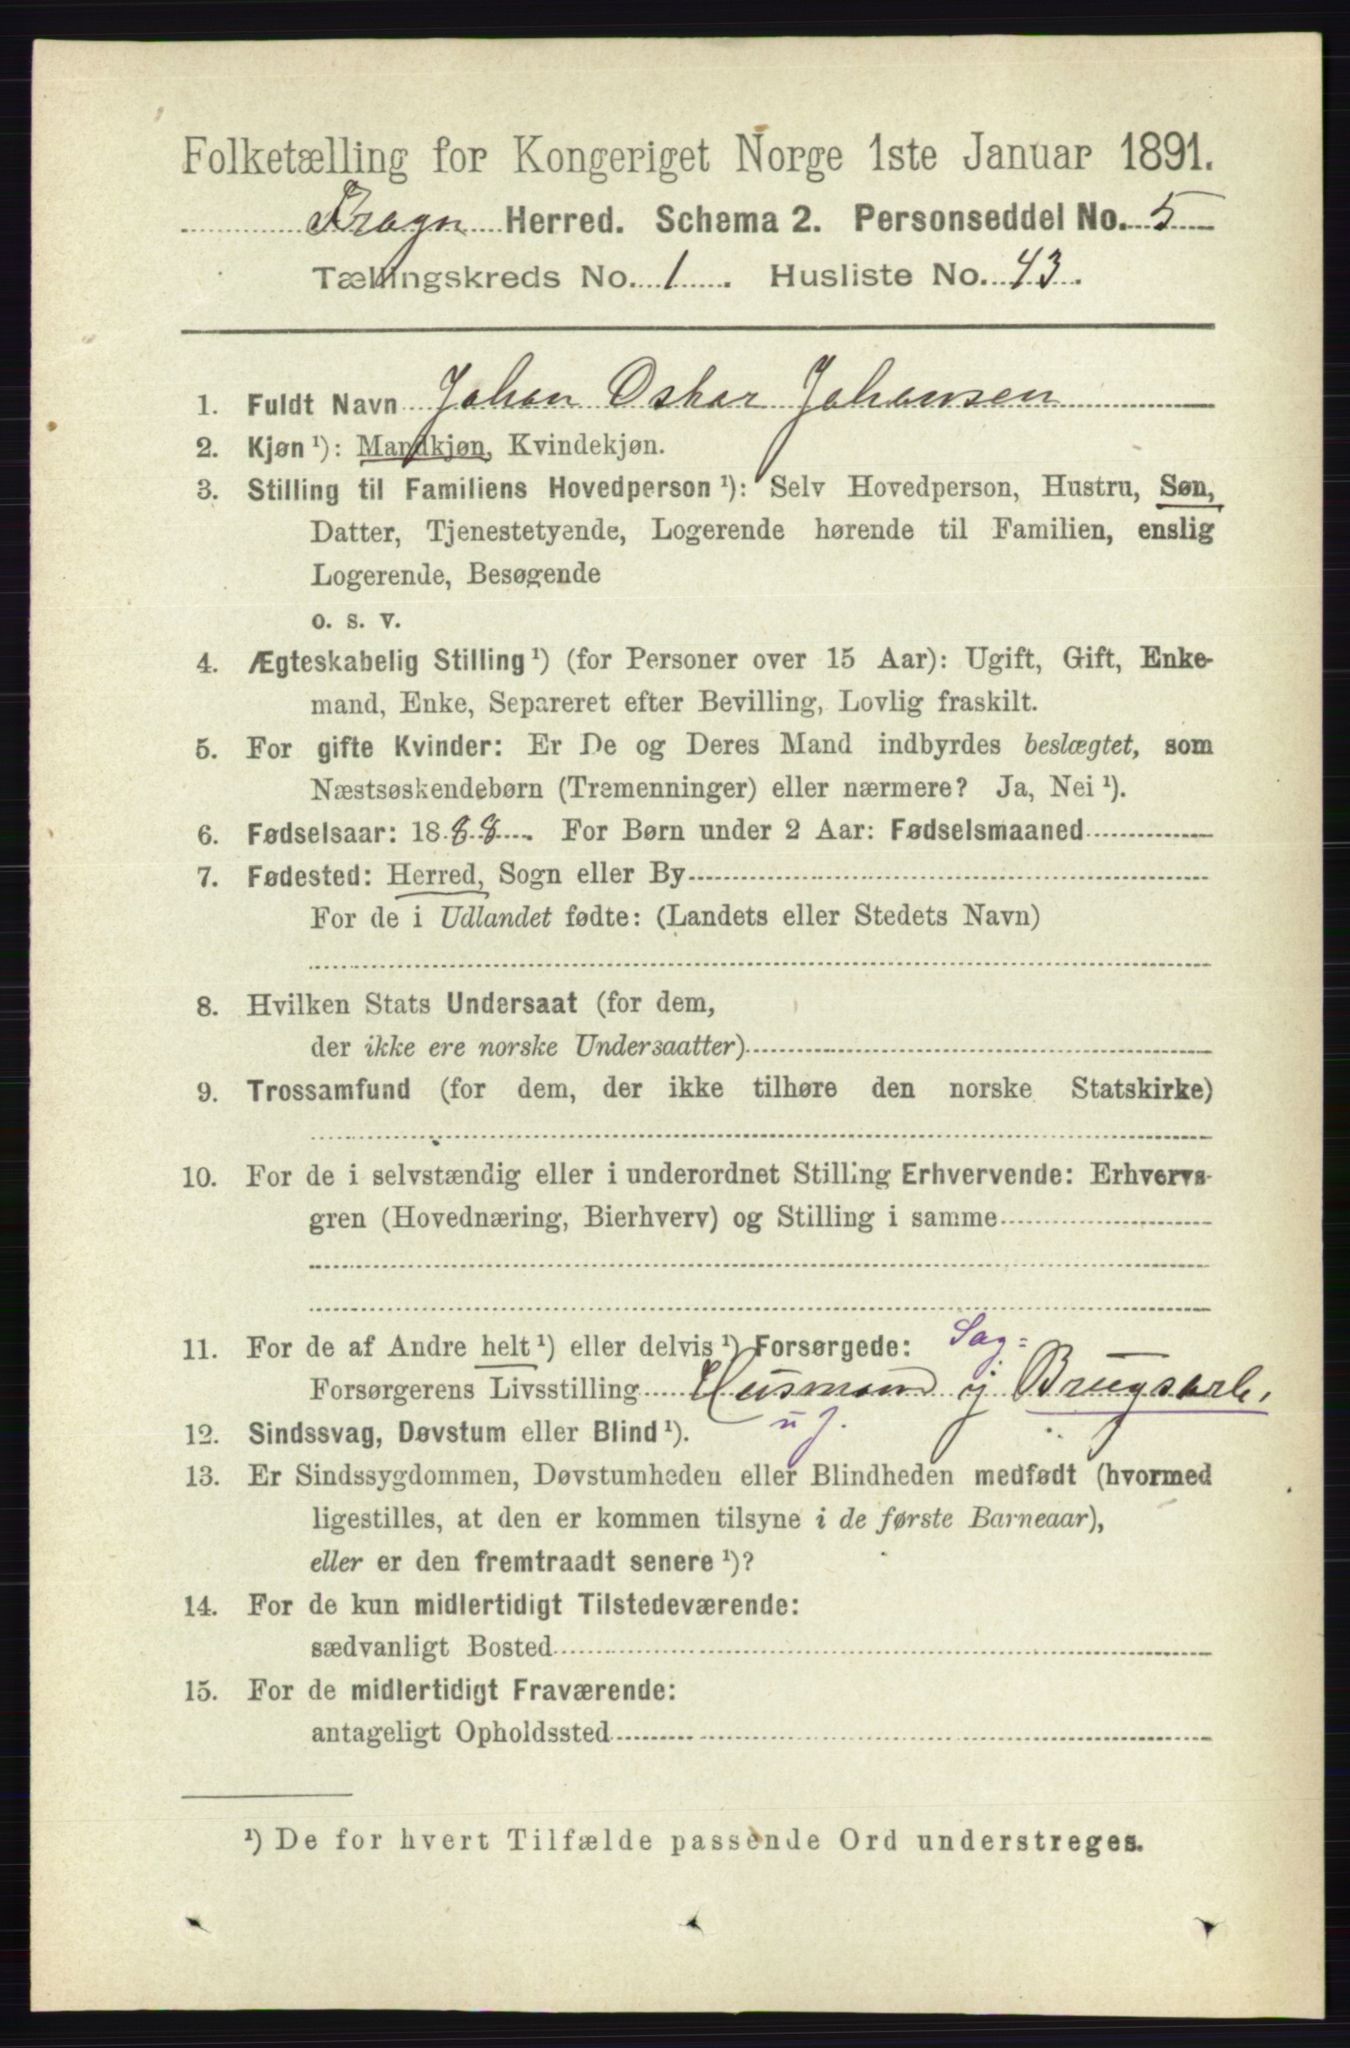 Folketælling for Kongeriget Norge 1ste Januar 1891.
Frogn Herred. Schema 2. Personseddel No. 5
Tællingskreds No. 1. Husliste No. 43.
1. Fuldt Navn Johan Oskar Johansen
2. Kjøn ¹): Mandkjøn, Kvindekjøn.
3. Stilling til Familiens Hovedperson ¹): Selv Hovedperson, Hustru, Søn,
Datter, Tjenestetyende, Logerende hørende til Familien, enslig
Logerende, Besøgende
o. s. v.
4. Ægteskabelig Stilling ¹) (for Personer over 15 Aar): Ugift, Gift, Enke-
mand, Enke, Separeret efter Bevilling, Lovlig fraskilt.
5. For gifte Kvinder: Er De og Deres Mand indbyrdes beslægtet, som
Næstsøskendebørn (Tremenninger) eller nærmere? Ja, Nei ¹).
6. Fødselsaar: 1888. For Børn under 2 Aar: Fødselsmaaned
7. Fødested: Herred, Sogn eller By
For de i Udlandet fødte: (Landets eller Stedets Navn)
8. Hvilken Stats Undersaat (for dem,
der ikke ere norske Undersaatter)
9. Trossamfund (for dem, der ikke tilhøre den norske Statskirke)
10. For de i selvstændig eller i underordnet Stilling Erhvervende: Erhvervs-
gren (Hovednæring, Bierhverv) og Stilling i samme
11. For de af Andre helt ¹) eller delvis ¹) Forsørgede: Sag=
Forsørgerens Livsstilling Husmand Brugsarb.
u j.
12. Sindssvag, Døvstum eller Blind ¹).
13. Er Sindssygdommen, Døvstumheden eller Blindheden medfødt (hvormed
ligestilles, at den er kommen tilsyne i de første Barneaar),
eller er den fremtraadt senere ¹)?
14. For de kun midlertidigt Tilstedeværende:
sædvanligt Bosted
15. For de midlertidigt Fraværende:
antageligt Opholdssted
¹) De for hvert Tilfælde passende Ord understreges.